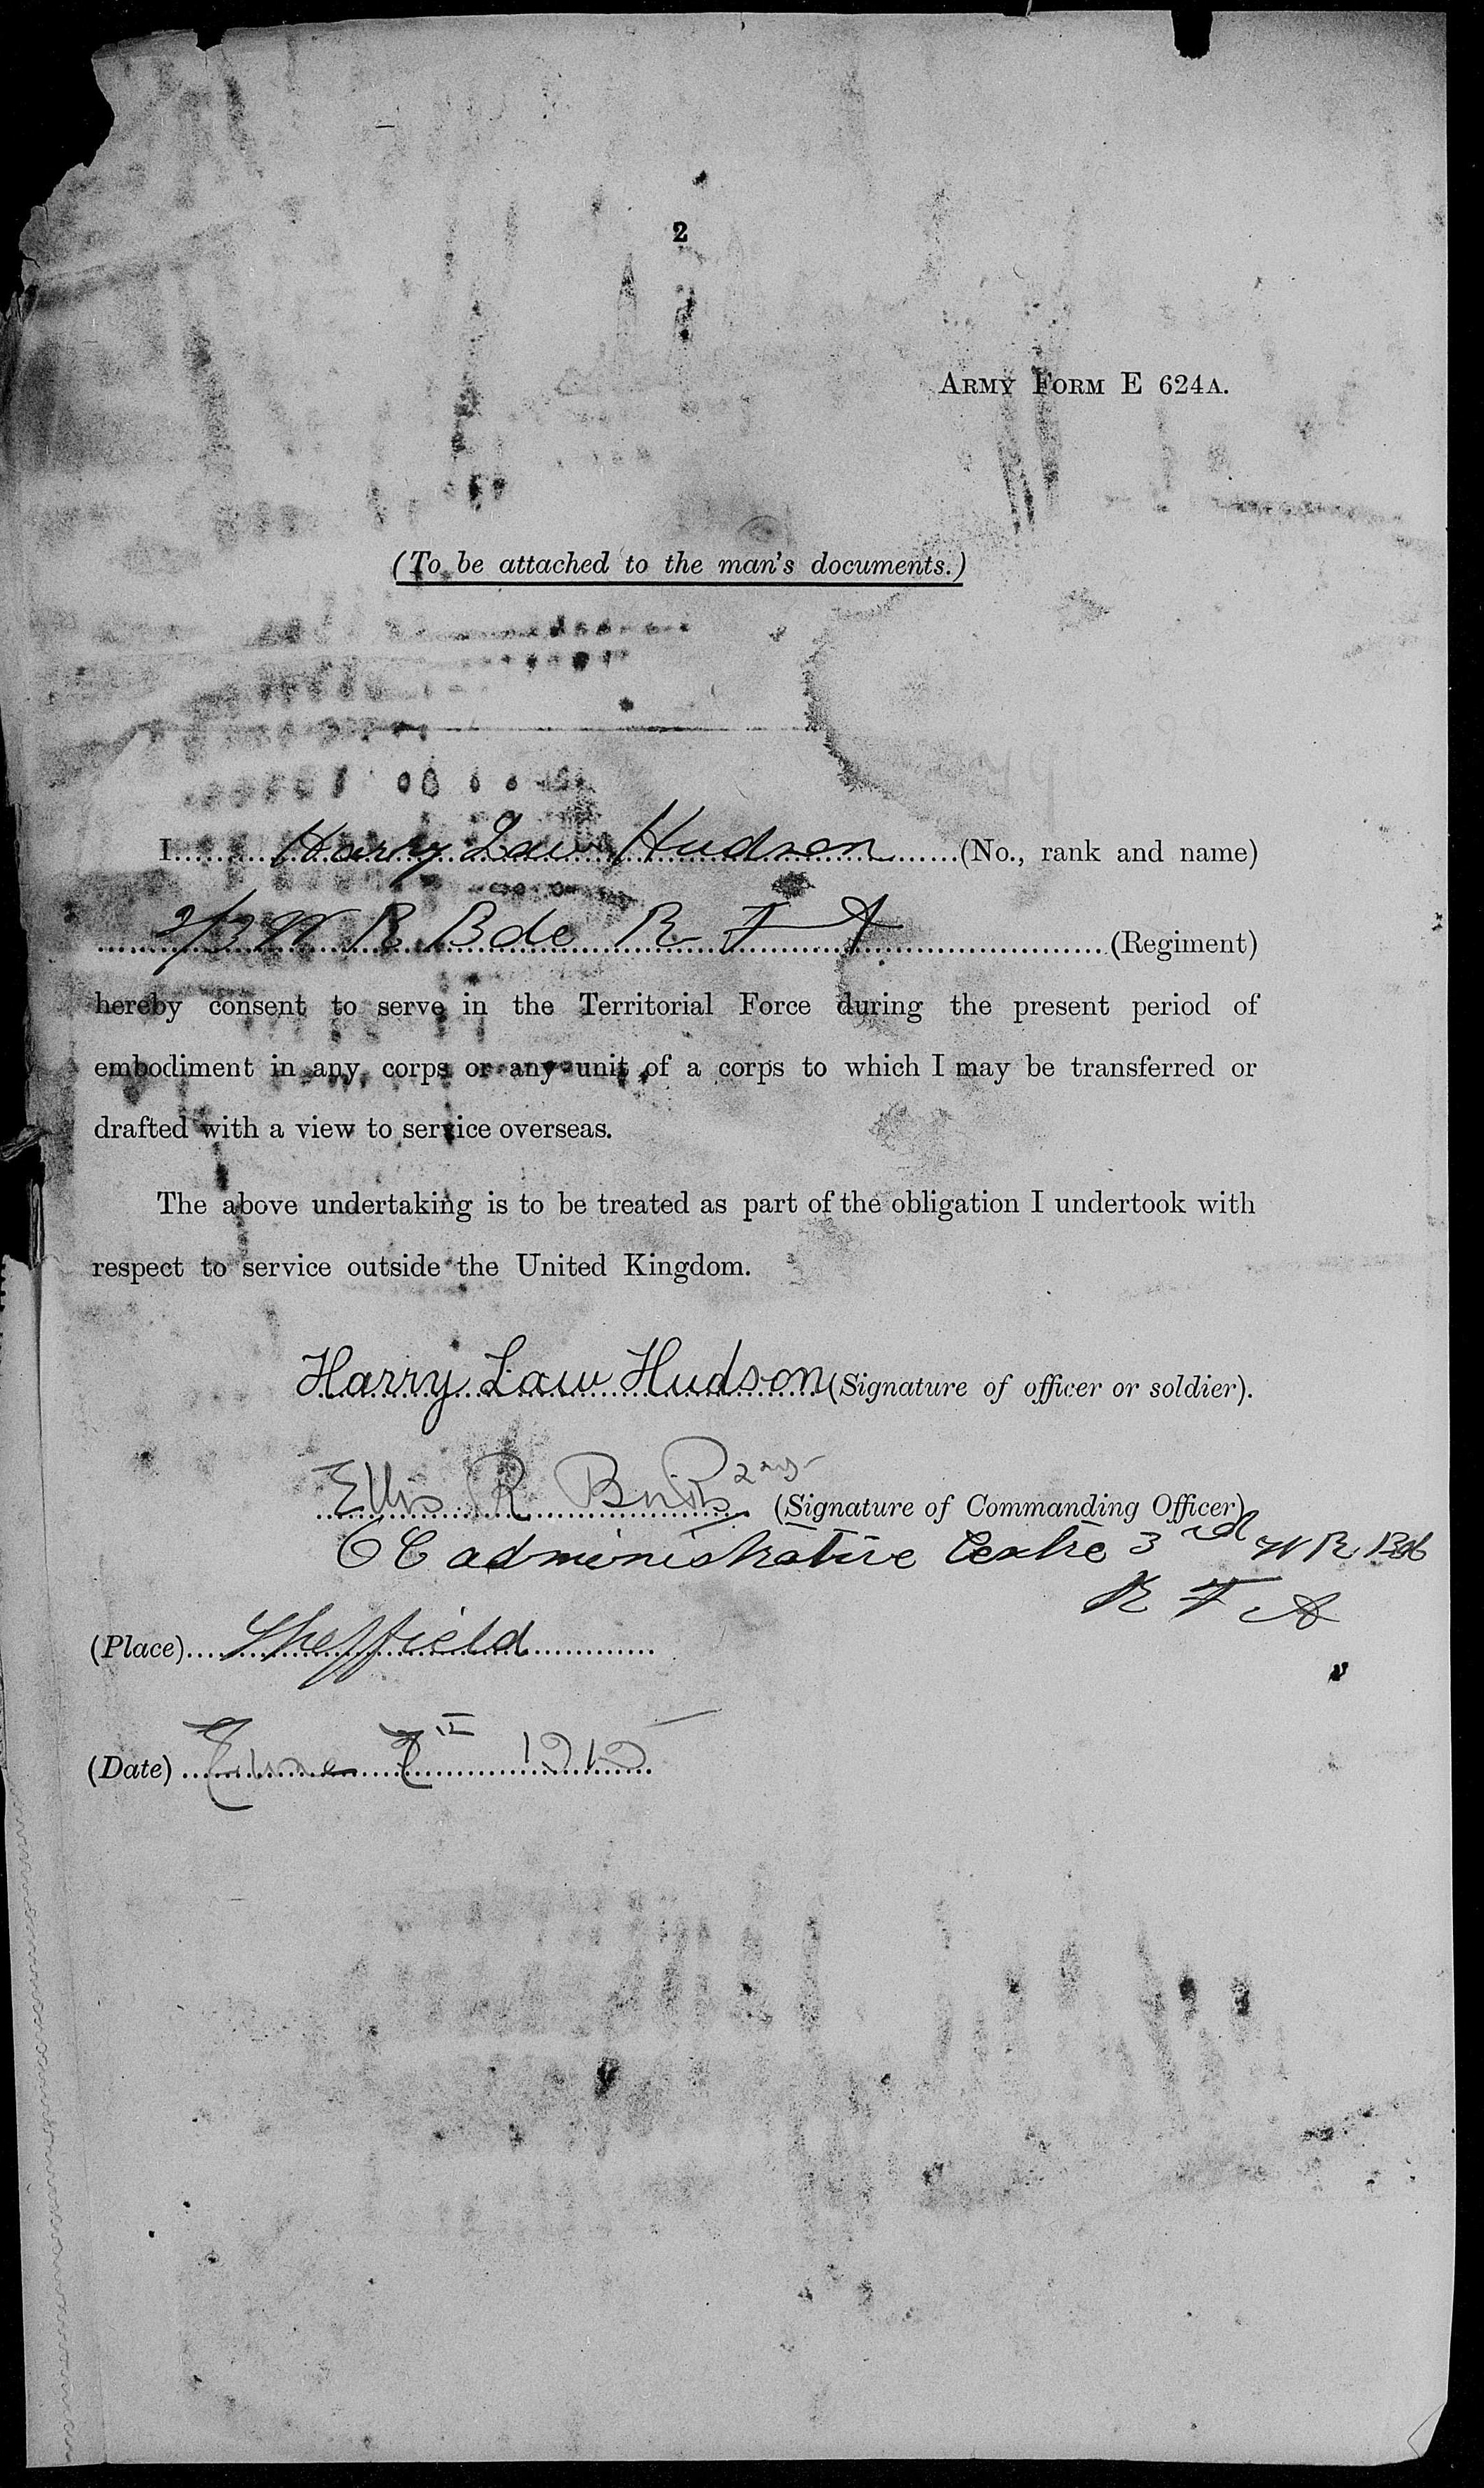 2
ARMY FORM E 624A.
(To be attached to the man's documents.)
I Harry Law Hudson (No., rank and name)
2/3 W R Bde R F A (Regiment)
hereby consent to serve in the Territorial Force during the present period of
embodiment in any corps or any unit of a corps to which I may be transferred or
drafted with a view to service overseas.
The above undertaking is to be treated as part of the obligation I undertook with
respect to service outside the United Kingdom.
Harry Law Hudson (Signature of officer or soldier).
Ellis R (Signature of Commanding Officer)
O C administrative Centre 3rd W R Bde
R F A
(Place) Sheffield
(Date) June 7th 1915